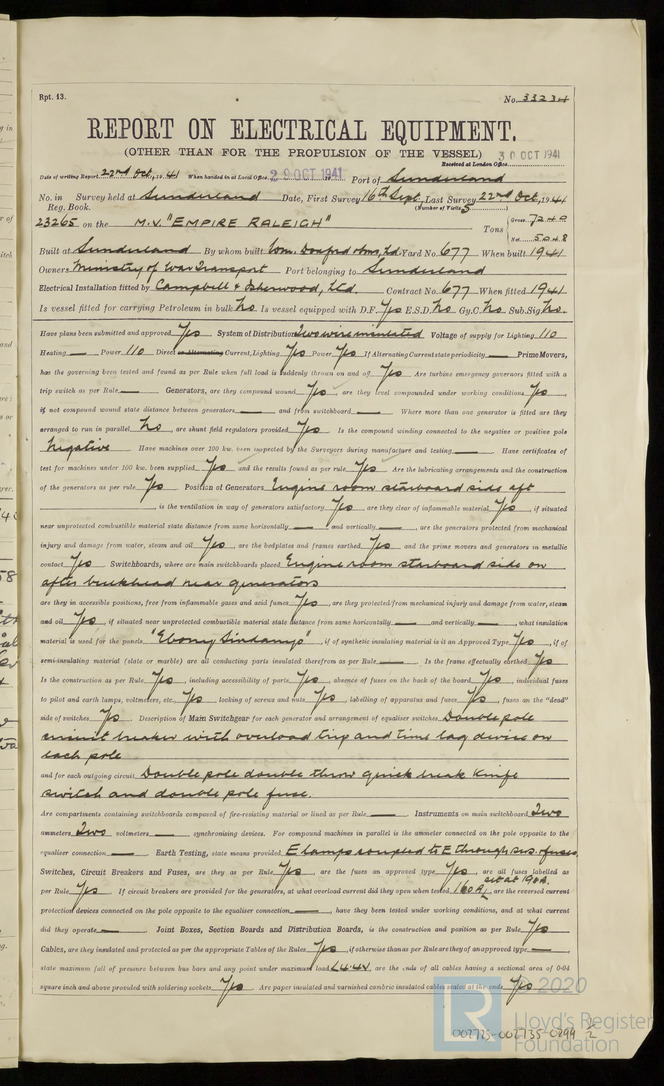 Rpt. 13. No. 33234
REPORT ON ELECTRICAL EQUIPMENT.
(OTHER THAN FOR THE PROPULSION OF THE VESSEL) 30 OCT 1941
Received at London Office
Date of writing Report 22nd Oct, 1941 When handed in at Local Office 29 OCT 1941 Port of Sunderland
No. in Survey held at Sunderland Date, First Survey 16th Sept, Last Survey 22nd Oct, 1941
Reg. Book. (Number of Visits 5)
23265 on the M.V. "EMPIRE RALEIGH" Tons Gross 7240 Net 5048
Built at Sunderland By whom built Wm. Doxford & Sons, Ltd. Yard No. 677 When built 1941
Owners Ministry of War Transport Port belonging to Sunderland
Electrical Installation fitted by Campbell & Isherwood, Ltd. Contract No. 677 When fitted 1941
Is vessel fitted for carrying Petroleum in bulk No. Is vessel equipped with D.F. Yes E.S.D. No Gy.C. No Sub.Sig. No.
Have plans been submitted and approved Yes System of Distribution Two wire insulated Voltage of supply for Lighting 110
Heating — Power 110 Direct or Alternating Current, Lighting Yes Power Yes If Alternating Current state periodicity — Prime Movers,
has the governing been tested and found as per Rule when full load is suddenly thrown on and off Yes Are turbine emergency governors fitted with a
trip switch as per Rule — Generators, are they compound wound Yes, are they level compounded under working conditions Yes,
if not compound wound state distance between generators — and from switchboard — Where more than one generator is fitted are they
arranged to run in parallel No, are shunt field regulators provided Yes Is the compound winding connected to the negative or positive pole
Negative Have machines over 100 kw. been inspected by the Surveyors during manufacture and testing — Have certificates of
test for machines under 100 kw. been supplied Yes and the results found as per rule Yes Are the lubricating arrangements and the construction
of the generators as per rule Yes Position of Generators Engine room starboard side aft
, is the ventilation in way of generators satisfactory Yes, are they clear of inflammable material Yes, if situated
near unprotected combustible material state distance from same horizontally — and vertically —, are the generators protected from mechanical
injury and damage from water, steam and oil Yes, are the bedplates and frames earthed Yes and the prime movers and generators in metallic
contact Yes Switchboards, where are main switchboards placed Engine room starboard side on
after bulkhead near generators
are they in accessible positions, free from inflammable gases and acid fumes Yes, are they protected from mechanical injury and damage from water, steam
and oil Yes, if situated near unprotected combustible material state distance from same horizontally — and vertically —, what insulation
material is used for the panels "Ebony Sindanyo", if of synthetic insulating material is it an Approved Type Yes, if of
semi-insulating material (slate or marble) are all conducting parts insulated therefrom as per Rule — Is the frame effectually earthed Yes
Is the construction as per Rule Yes, including accessibility of parts Yes, absence of fuses on the back of the board Yes, individual fuses
to pilot and earth lamps, voltmeters, etc. Yes locking of screws and nuts Yes, labelling of apparatus and fuses Yes, fuses on the "dead"
side of switches Yes Description of Main Switchgear for each generator and arrangement of equaliser switches Double pole
circuit breaker with overload trip and time lag device on
each pole
and for each outgoing circuit Double pole double throw quick break knife
switch and double pole fuse.
Are compartments containing switchboards composed of fire-resisting material or lined as per Rule — Instruments on main switchboard Two
ammeters Two voltmeters — synchronising devices. For compound machines in parallel is the ammeter connected on the pole opposite to the
equaliser connection — Earth Testing, state means provided E lamps coupled to E through sw. & fuses
Switches, Circuit Breakers and Fuses, are they as per Rule Yes, are the fuses an approved type Yes, are all fuses labelled as
per Rule Yes If circuit breakers are provided for the generators, at what overload current did they open when tested 160A set at 190A., are the reversed current
protection devices connected on the pole opposite to the equaliser connection —, have they been tested under working conditions, and at what current
did they operate — Joint Boxes, Section Boards and Distribution Boards, is the construction and position as per Rule Yes
Cables, are they insulated and protected as per the appropriate Tables of the Rules Yes, if otherwise than as per Rule are they of an approved type —
state maximum fall of pressure between bus bars and any point under maximum load <4.4V, are the ends of all cables having a sectional area of 0·04
square inch and above provided with soldering sockets Yes Are paper insulated and varnished cambric insulated cables sealed at the ends Yes
© 2020
LR
Lloyd's Register
Foundation
002725-002735-0299 1/2